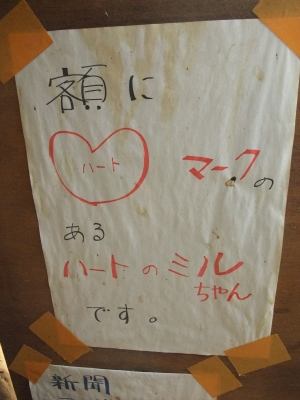 額に
ハート マークの
ある
ハートのミル
ちゃん
です。
新聞